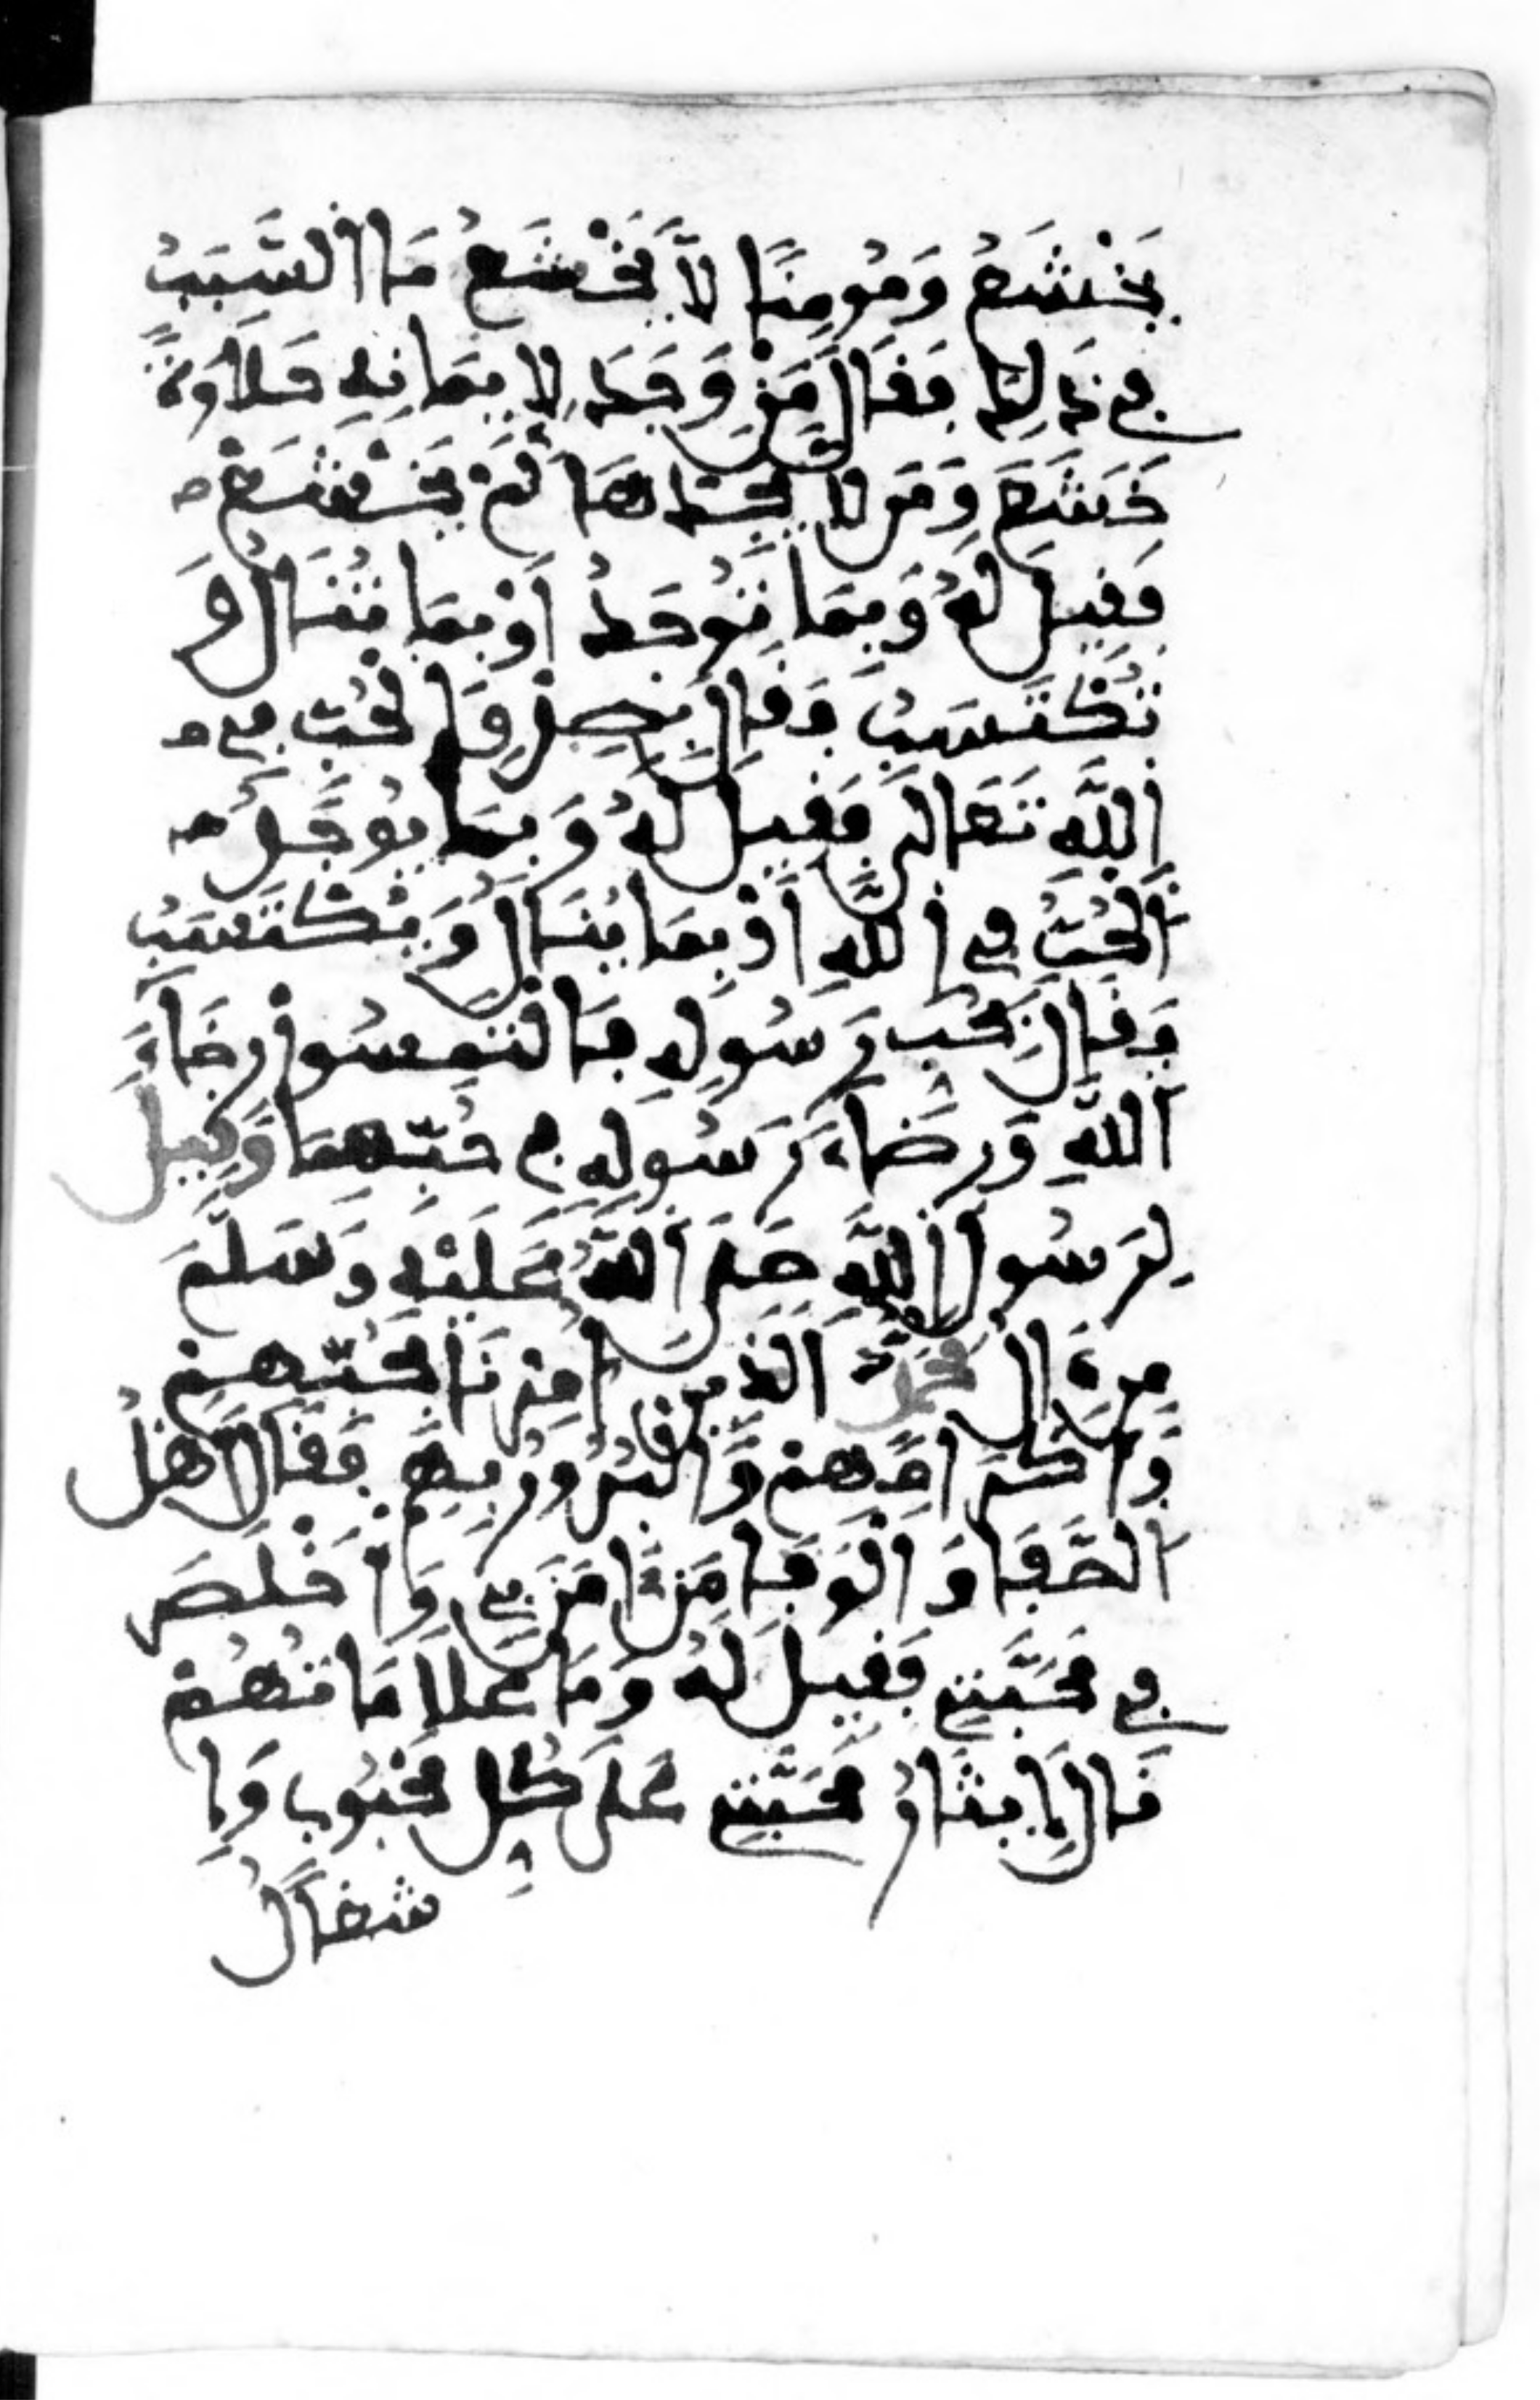 يَخْشَعُ وَمُومِنًا لَّا يَخْشَعُ مَا السَّبَبُ
في ذَلِكَ فَقَالَ مَنْ وَجَدَ لِإِيمَانِهِ حَلَاوَةً
خَشَعَ وَمَن لَّا يَجِدْهَا لَمْ يَخْشَعْ
فَقِيلَ لَهُ وَبِمَا تُوجَدُ أَوْ بِمَا تُنَالُ وَ
تُكْتَسَبُ فَقَالَ بِصِدْقِ الْحُبِّ في
اللَّهِ تَعَالَى فَقِيلَ لَهُ وَبِمَا يُوجَدُ
الْحُبُّ في اللَّهِ أَوْ بِمَا يُنَالُ وَيُكْتَسَبُ
فَقَالَ بِحُبِّ رَسُولِهِ فَالْتَمِسُوا رِضَاءَ
اللَّهِ وَرِضَاءَ رَسُولِهِ في حُبِّهِمَا وَقِيلَ
لِرَسُولِ اللَّهِ صَلَّى اللَّهُ عَلَيْهِ وَسَلَّمَ
مَنْ آلُ مُحَمَّدٍ الَّذِينَ أُمِرْنَا بِحُبِّهِمْ
وَإِكْرَامِهِمْ وَالْبُرُورِ بِهِمْ فَقَالَ أَهْلُ
الصَّفَا وَالْوَفَا مَنْ آمَنَ بِي وَأَخْلَصَ
في مَحَبَّتِي فَقِيلَ لَهُ وَمَا عَلَامَاتُهُمْ
قَالَ إِيثَارُ مَحَبَّتِي عَلَى كُلِّ مَحْبُوبٍ وَإِ
شْتِغَالُ